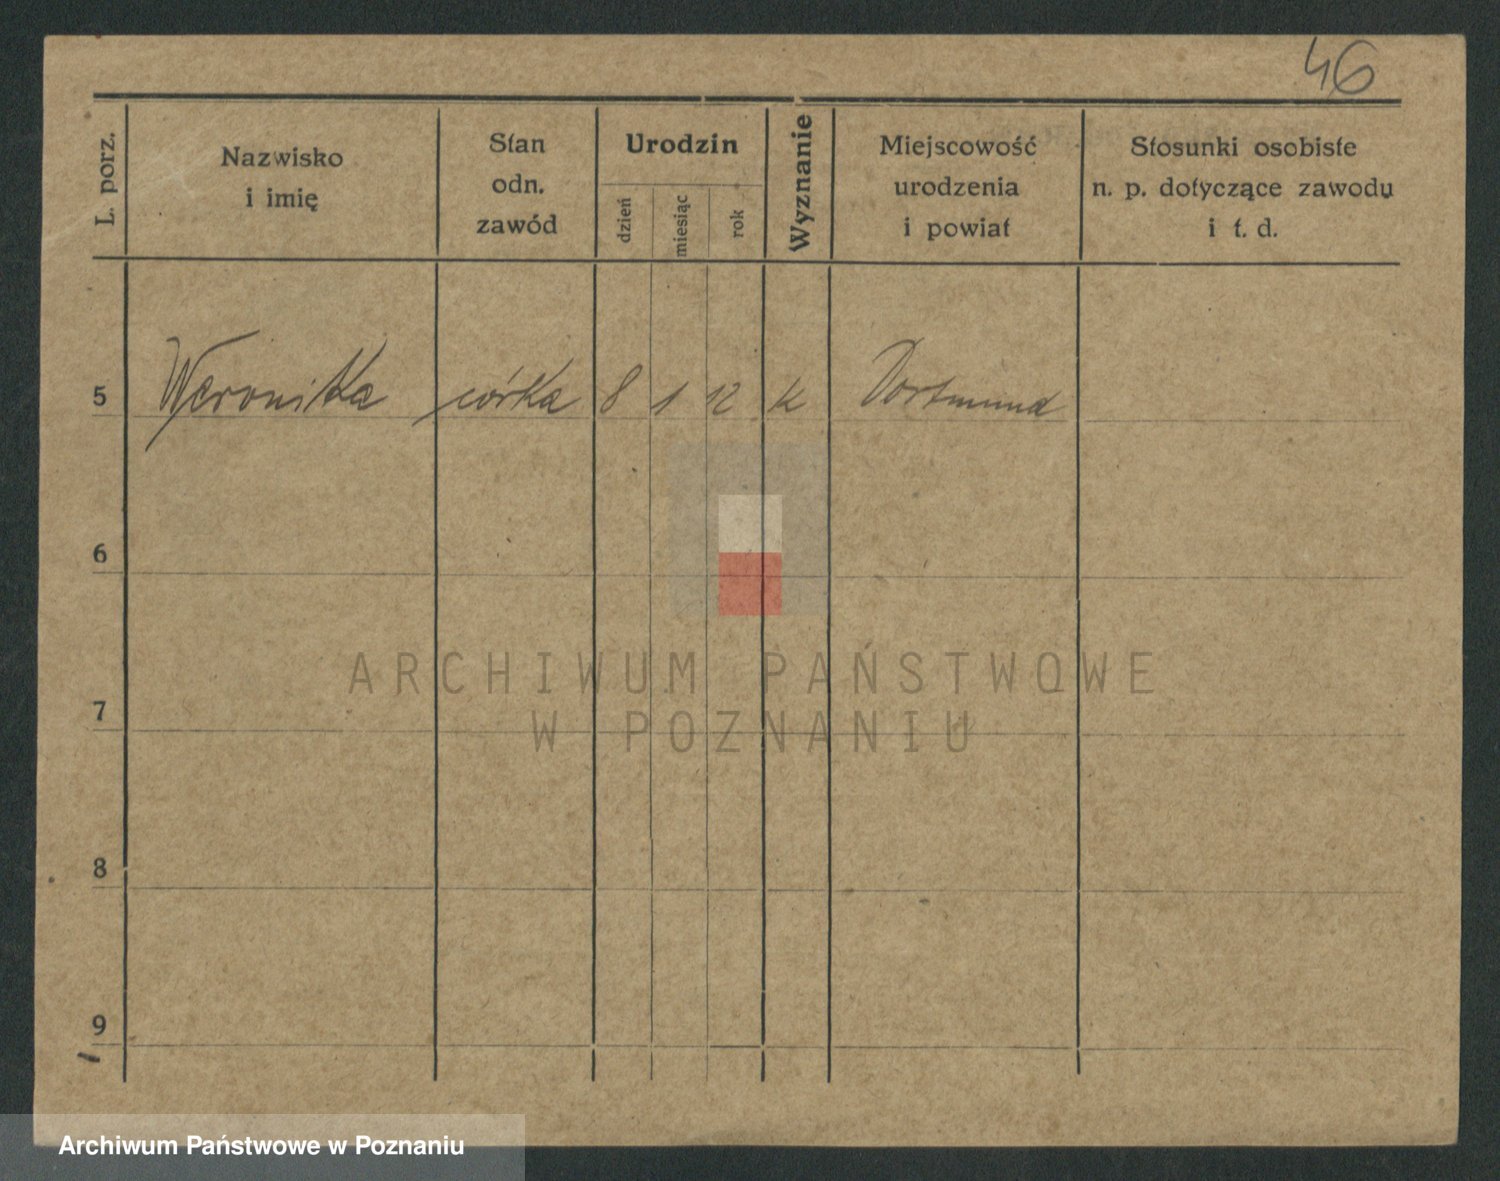 46
L. porz.
Nazwisko
i imię
Stan
odn.
zawód
Urodzin
dzień
miesiąc
rok
Wyznanie
Miejscowość
urodzenia
i powiat
Stosunki osobiste
n. p. dotyczące zawodu
i t. d.
5 Weronika córka 8 1 12 K Dortmund
6
7
8
9
ARCHIWUM PAŃSTWOWE
W POZNANIU
Archiwum Państwowe w Poznaniu